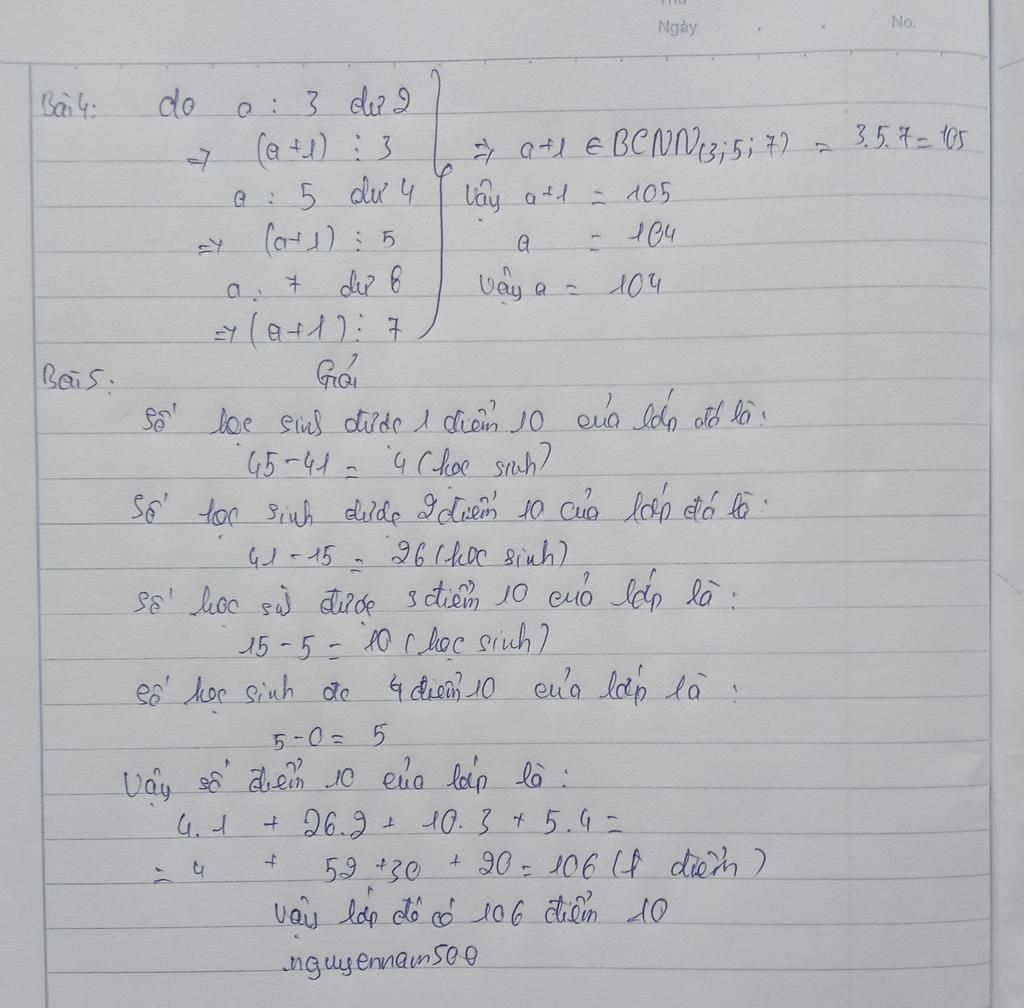 Thứ
Ngày . . No.
Bài 4: do a : 3 dư 2
=> (a+1) ⋮ 3
a : 5 dư 4
=> (a+1) ⋮ 5
a : 7 dư 6
=> (a+1) ⋮ 7
=> a+1 ∈ BCNN(3;5;7) = 3.5.7=105
Vậy a+1 = 105
a = 104
Vậy a = 104
Bài 5: Giải
Số học sinh được 1 điểm 10 của lớp đó là:
45-41 = 4 (học sinh)
Số học sinh được 2 điểm 10 của lớp đó là:
41-15 = 26 (học sinh)
Số học si được 3 điểm 10 của lớp là:
15-5 = 10 (học sinh)
Số học sinh đc 4 điểm 10 của lớp là:
5-0 = 5
Vậy số điểm 10 của lớp là:
4.1 + 26.2 + 10.3 + 5.4 =
= 4 + 52 +30 + 20 = 106 ( điểm)
Vậy lớp đó có 106 điểm 10
nguyennam500